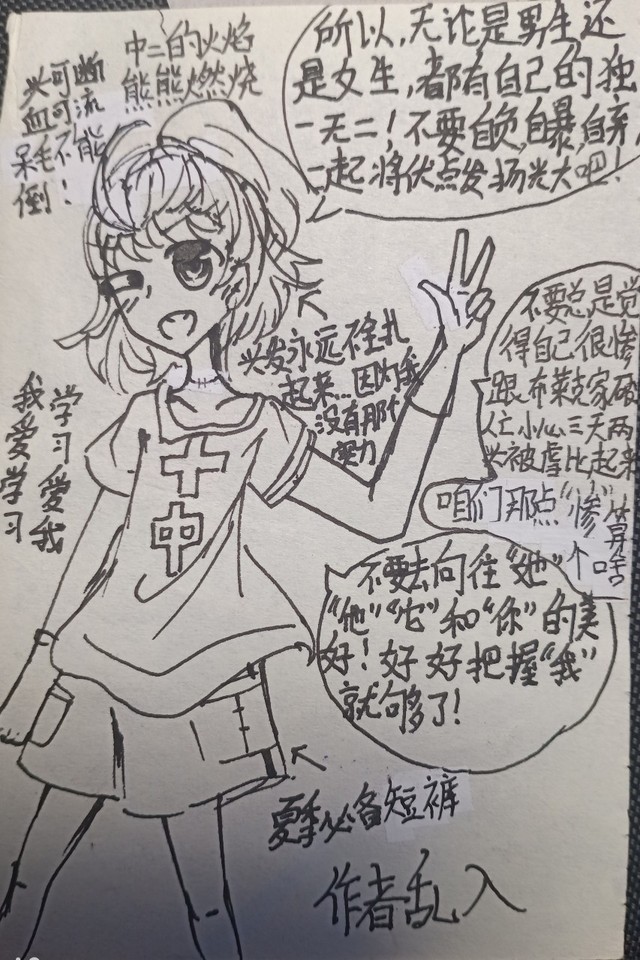 中二的火焰
熊熊燃烧
头可断
血可流
呆毛不能
倒！
所以,无论是男生还
是女生,都有自己的独
一无二！不要自负,自暴,自弃,
一起将优点发扬光大吧！
头发永远不全扎
起来...因为我
没有那个
实力
不要总是觉
得自己很惨
跟布莱克家破
人亡小心三天两
头被虐比起来
咱们那点“惨”算
个啥
我爱学习
学习爱我
十
中
不要去向往“她”
“他”“它”和“你”的美
好！好好把握“我”
就够了！
夏季必备短裤
作者乱入